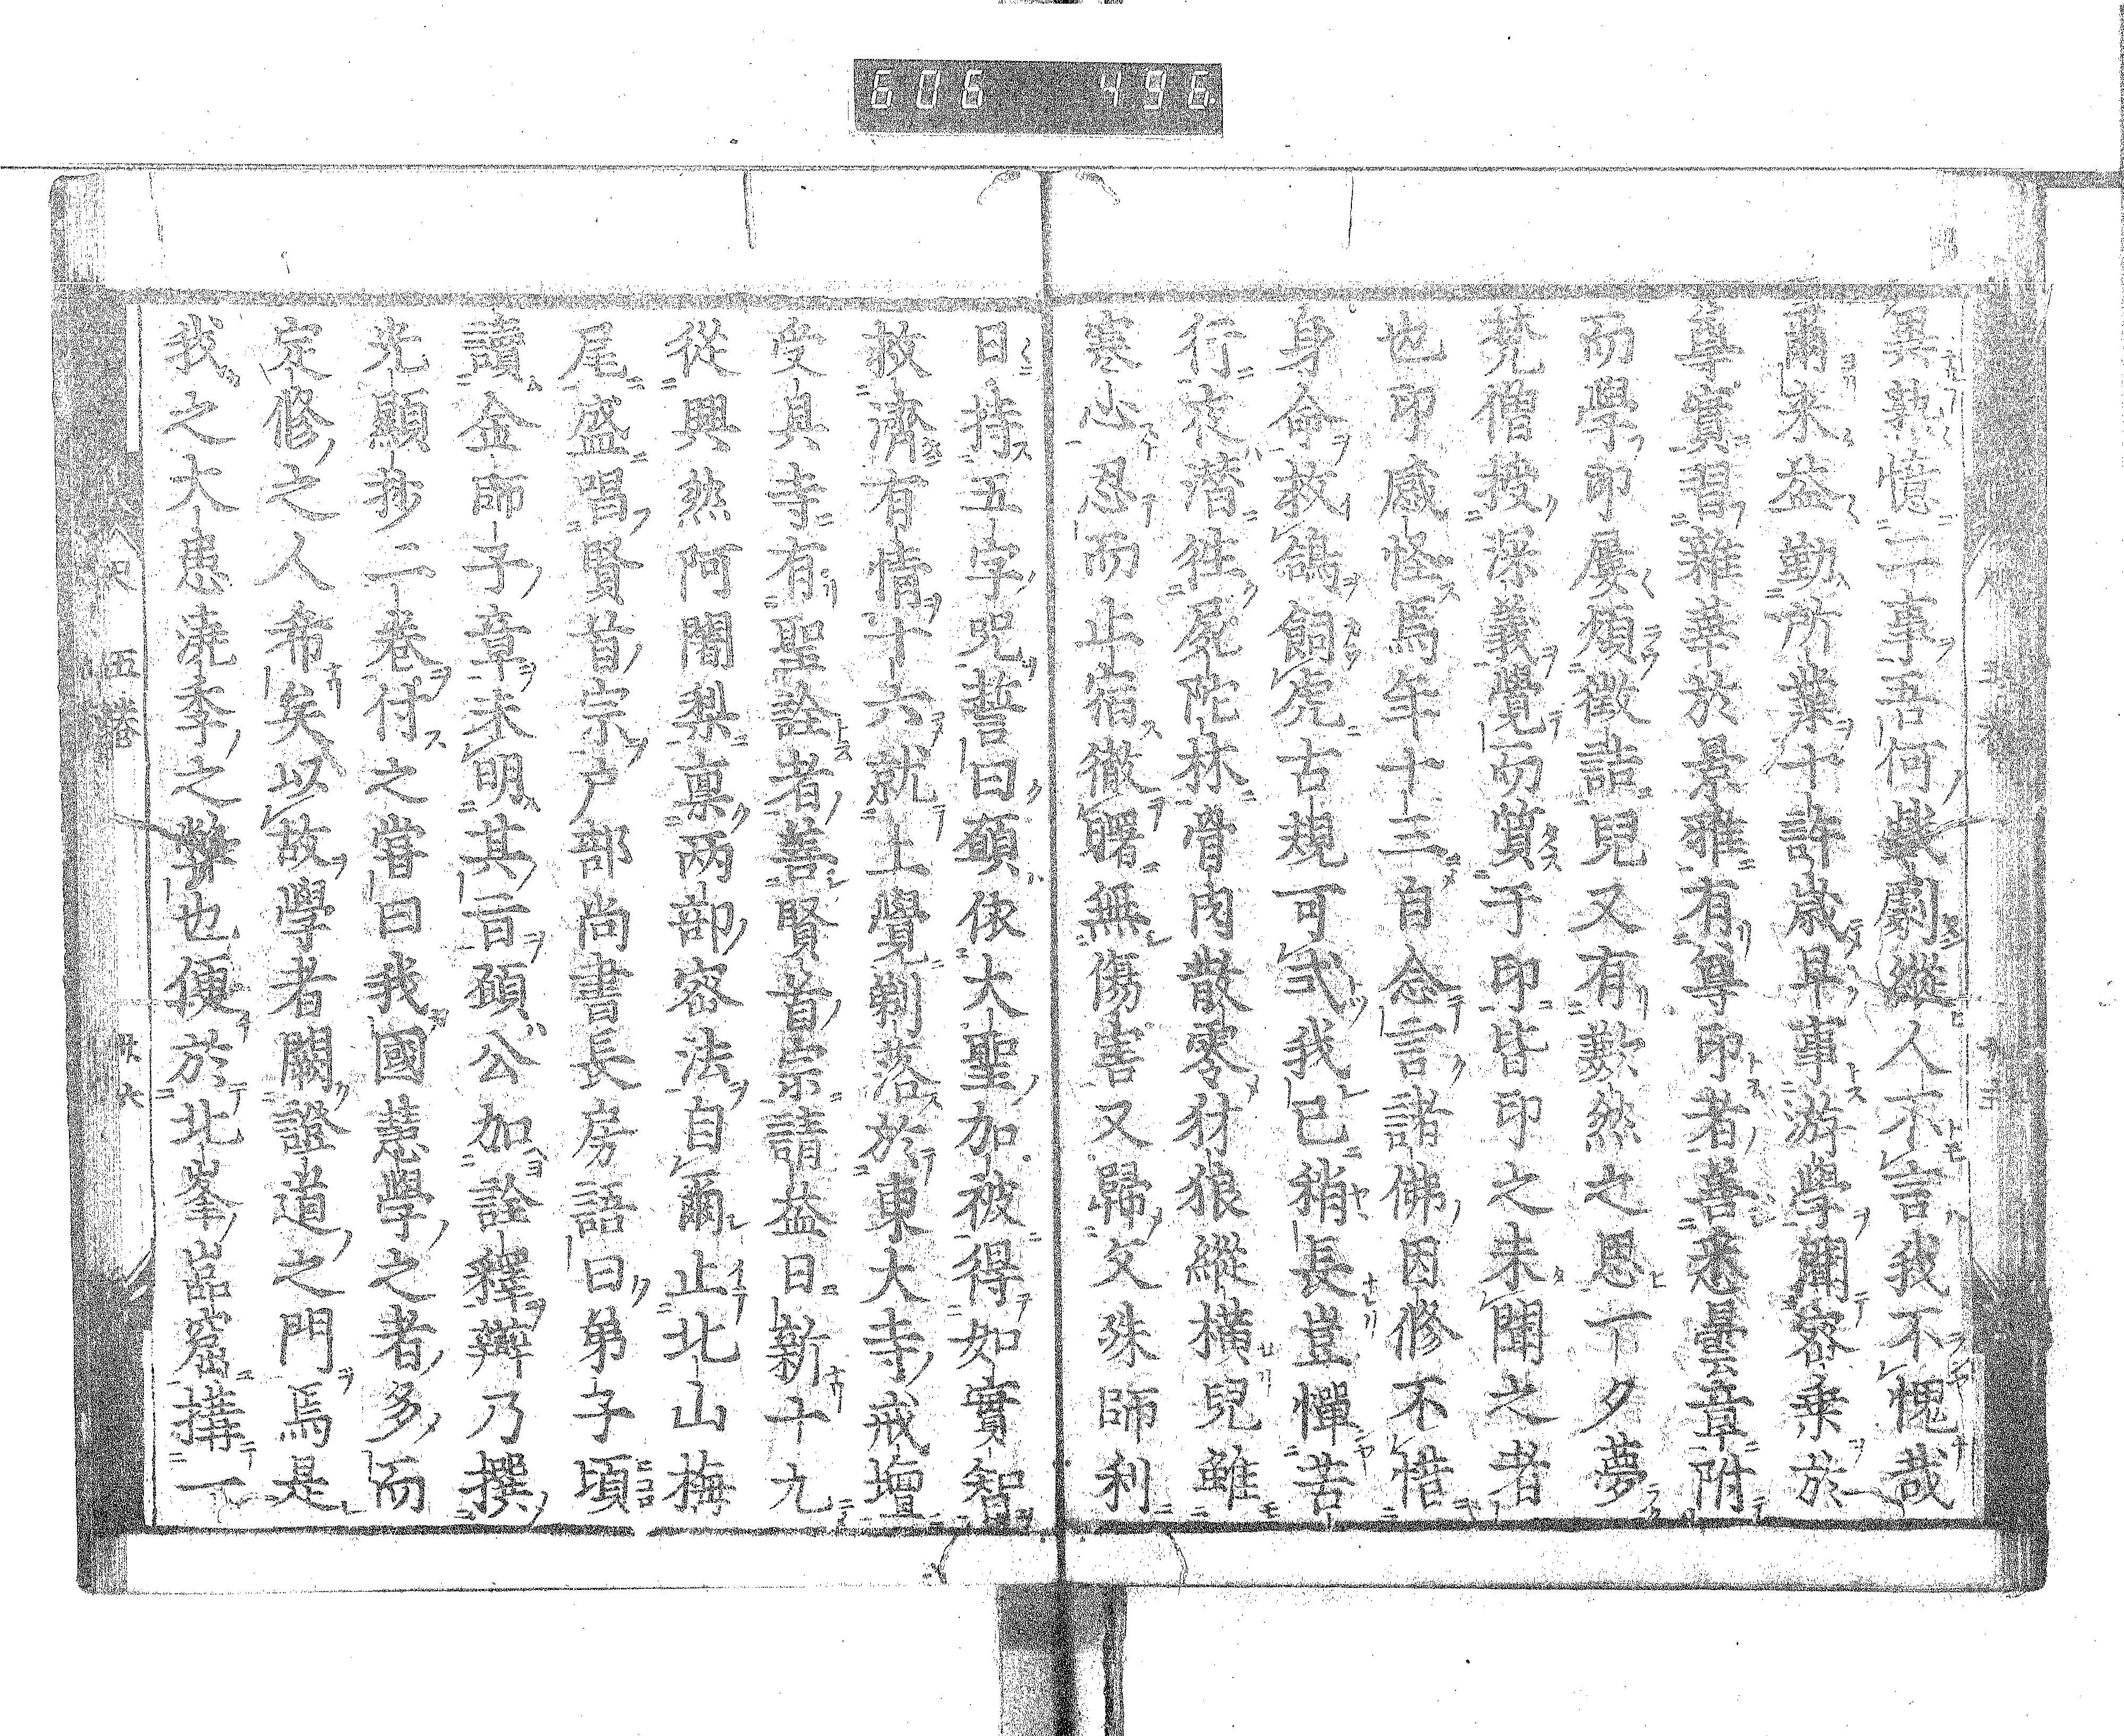 606 496
異熟憶二事吾何戲劇縱人不言我不愧哉
爾来益勤所業十許歳早事游學聞密乗於
尊實習雜華於景雅有尊印者善悉曇章附
而學印屢煩徴詰兒又有歎然之思一夕夢
梵僧授深義覺而質于印皆印之未聞之者
也印感怪焉年十三自念言諸佛因修不惜
身命救鴿飼虎古規可弐我已稍長豈憚苦
行夜潜徃屍陀林骨肉散零犲狼縱横兒雖
寒心忍而止宿徹曙無傷害又歸文殊師利
日持五字咒誓曰願依大聖加被得如實智
救濟有情十六就上覺剃落於東大寺戒壇
受具寺有聖詮者善賢首宗請益日新十九
從興然阿闍梨禀兩部密法自爾止北山梅
尾盛唱賢首宗戸部尚書長房語曰弟子頃
讀金師子章未明其旨願公加詮釋辯乃撰
光顯抄二巻付之嘗曰我國慧學之者多而
定修之人希矣以故學者闕證道之門焉是
我之大患澆季之弊也便於北峯嵓窟搆一
五巻